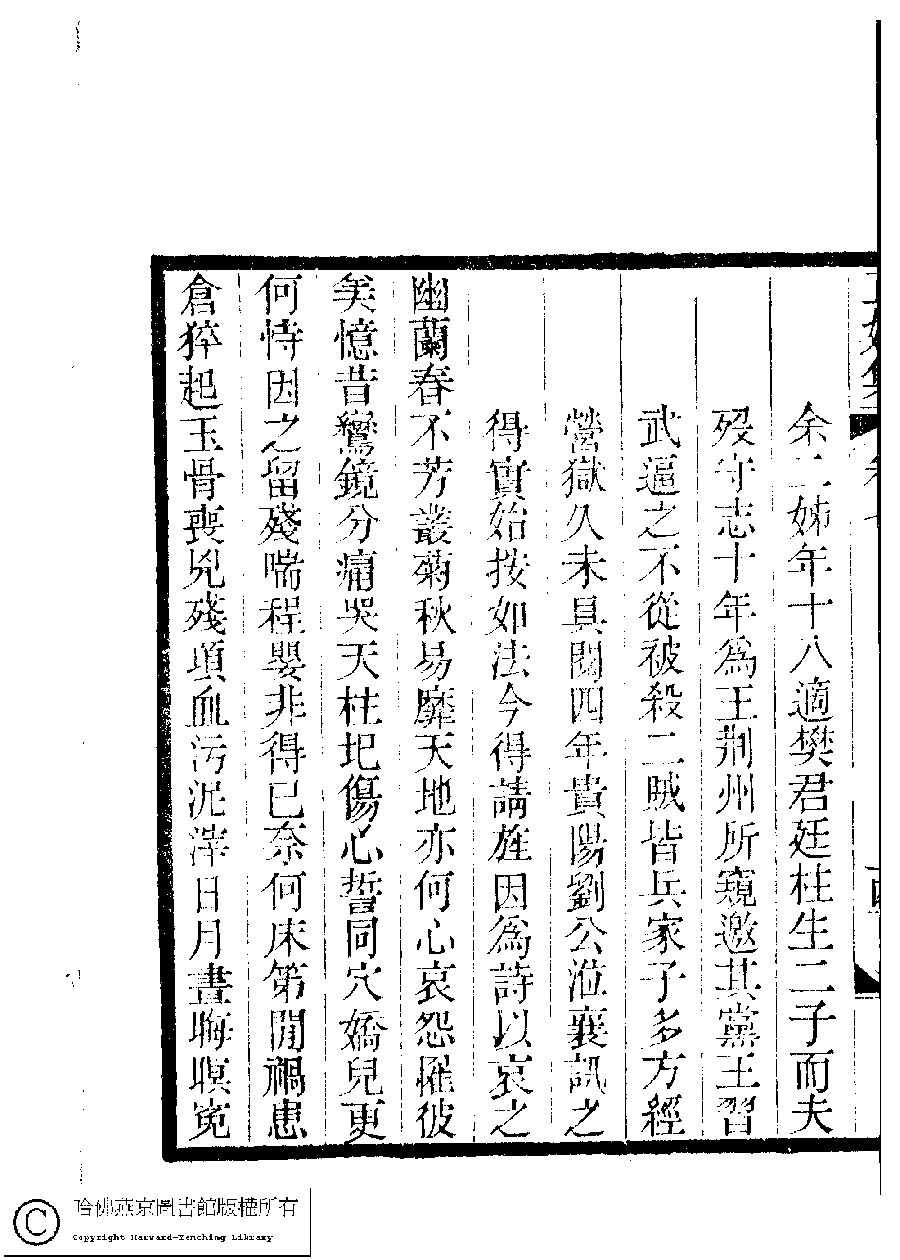 余二姊年十八適樊君廷柱生二子而夫
歿守志十年為王荆州所窺邀其黨王習
武逼之不從被殺二賊皆兵家子多方經
營獄久未具閱四年貴陽劉公涖襄訊之
得實始按如法今得請旌因為詩以哀之
幽蘭春不芳叢菊秋易靡天地亦何心哀怨罹彼
美憶昔鸞鏡分痛哭天柱圮傷心誓同穴嬌兒更
何恃因之留殘喘程嬰非得已奈何床第間禍患
倉猝起玉骨喪兇殘頭血污泥滓日月晝晦暝寃
哈佛燕京圖書館版權所有
Copyright Harvard-Yenching Library